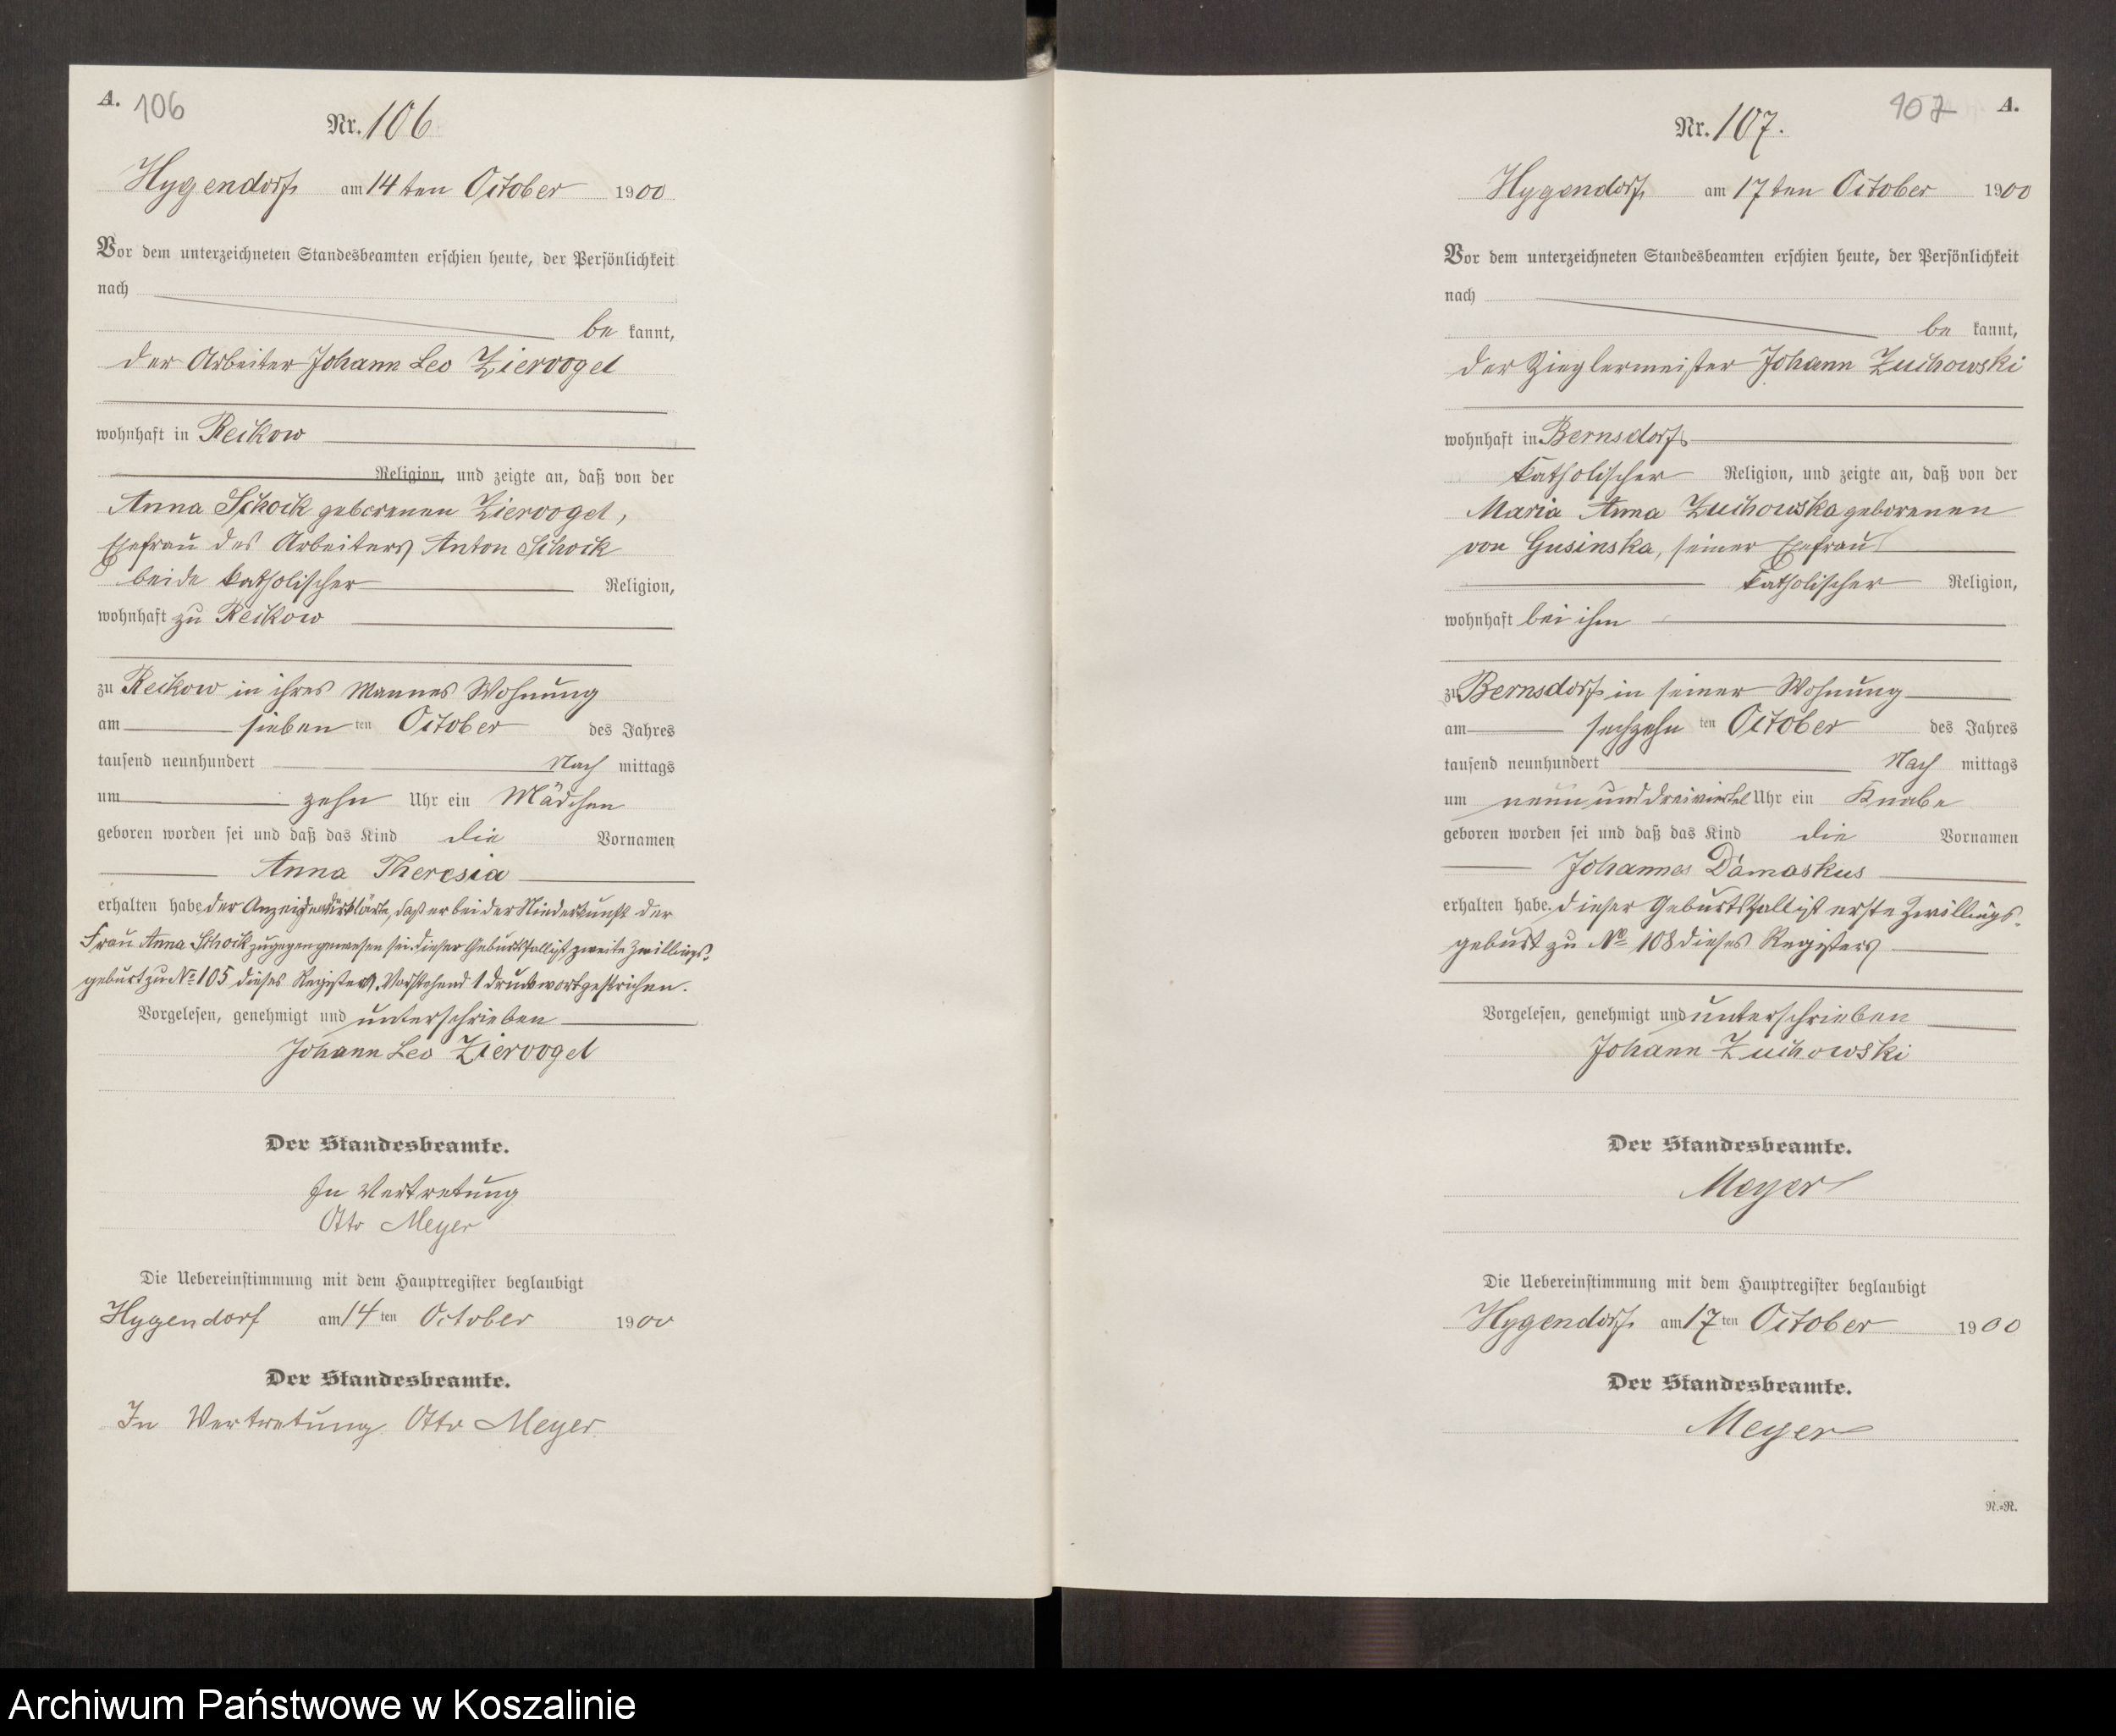 A. 106
Nr. 106
Hygendorf am 14ten October 1900
Vor dem unterzeichneten Standesbeamten erschien heute, der Persönlichkeit
nach
be kannt,
der Arbeiter Johann Leo Ziervogel
wohnhaft in Reikow
Religion, und zeigte an, daß von der
Anna Schock geborenen Ziervogel,
Ehefrau des Arbeiters Anton Schock
beide katholischer Religion,
wohnhaft zu Reikow
zu Reikow in ihres Mannes Wohnung
am sieben ten October des Jahres
tausend neunhundert Nach mittags
um zehn Uhr ein Mädchen
geboren worden sei und daß das Kind die Vornamen
Anna Theresia
erhalten habe der Anzeigende erklärte, daß er bei der Niederkunft der
Frau Anna Schock zugegen gewesen sei. dieser Geburtsfall ist zweite Zwillings-
geburt zu No 105 dieses Registers. Vorstehend 1 Druckwort gestrichen.
Vorgelesen, genehmigt und unterschrieben
Johann Leo Ziervogel
Der Standesbeamte.
In Vertretung
Otto Meyer
Die Uebereinstimmung mit dem Hauptregister beglaubigt
Hygendorf am 14 ten October 1900
Der Standesbeamte.
In Vertretung Otto Meyer
107 A.
Nr. 107.
Hygendorf am 17ten October 1900
Vor dem unterzeichneten Standesbeamten erschien heute, der Persönlichkeit
nach
be kannt,
der Zieglermeister Johann Zuchowski
wohnhaft in Bernsdorf
katholischer Religion, und zeigte an, daß von der
Maria Anna Zuchowska geborenen
von Gusinska, seiner Ehefrau
katholischer Religion,
wohnhaft bei ihm
zu Bernsdorf in seiner Wohnung
am sechzehn ten October des Jahres
tausend neunhundert Nach mittags
um neun und dreiviertel Uhr ein Knabe
geboren worden sei und daß das Kind die Vornamen
Johannes Damaskus
erhalten habe. dieser Geburtsfall ist erste Zwillings-
geburt zu No 108 dieses Registers
Vorgelesen, genehmigt und unterschrieben
Johann Zuchowski
Der Standesbeamte.
Meyer
Die Uebereinstimmung mit dem Hauptregister beglaubigt
Hygendorf am 17 ten October 1900
Der Standesbeamte.
Meyer
R.=R.
Archiwum Państwowe w Koszalinie